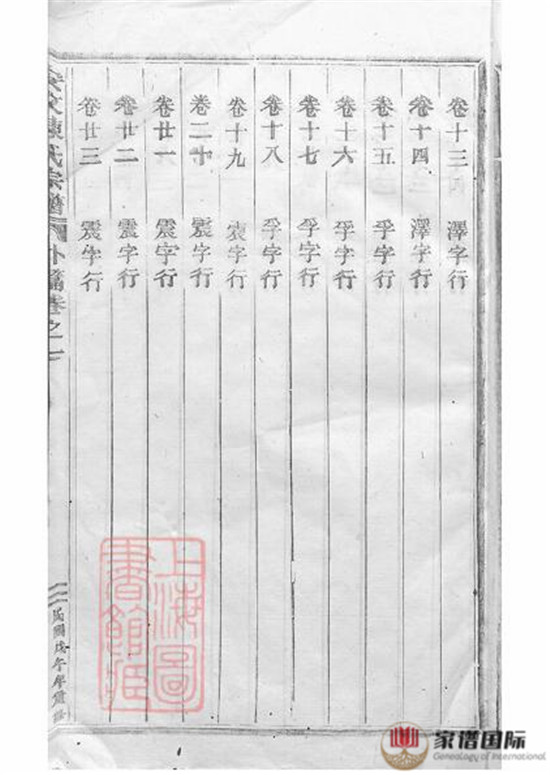 卷十三 澤字行
卷十四 澤字行
卷十五 孚字行
卷十六 孚字行
卷十七 孚字行
卷十八 孚字行
卷十九 寅字行
卷二十 震字行
卷廿一 震字行
卷廿二 震字行
卷廿三 震字行
陳氏宗譜 外篇卷之二
民國戊午年重修
上海圖書館藏
家谱国际
Genealogy of International